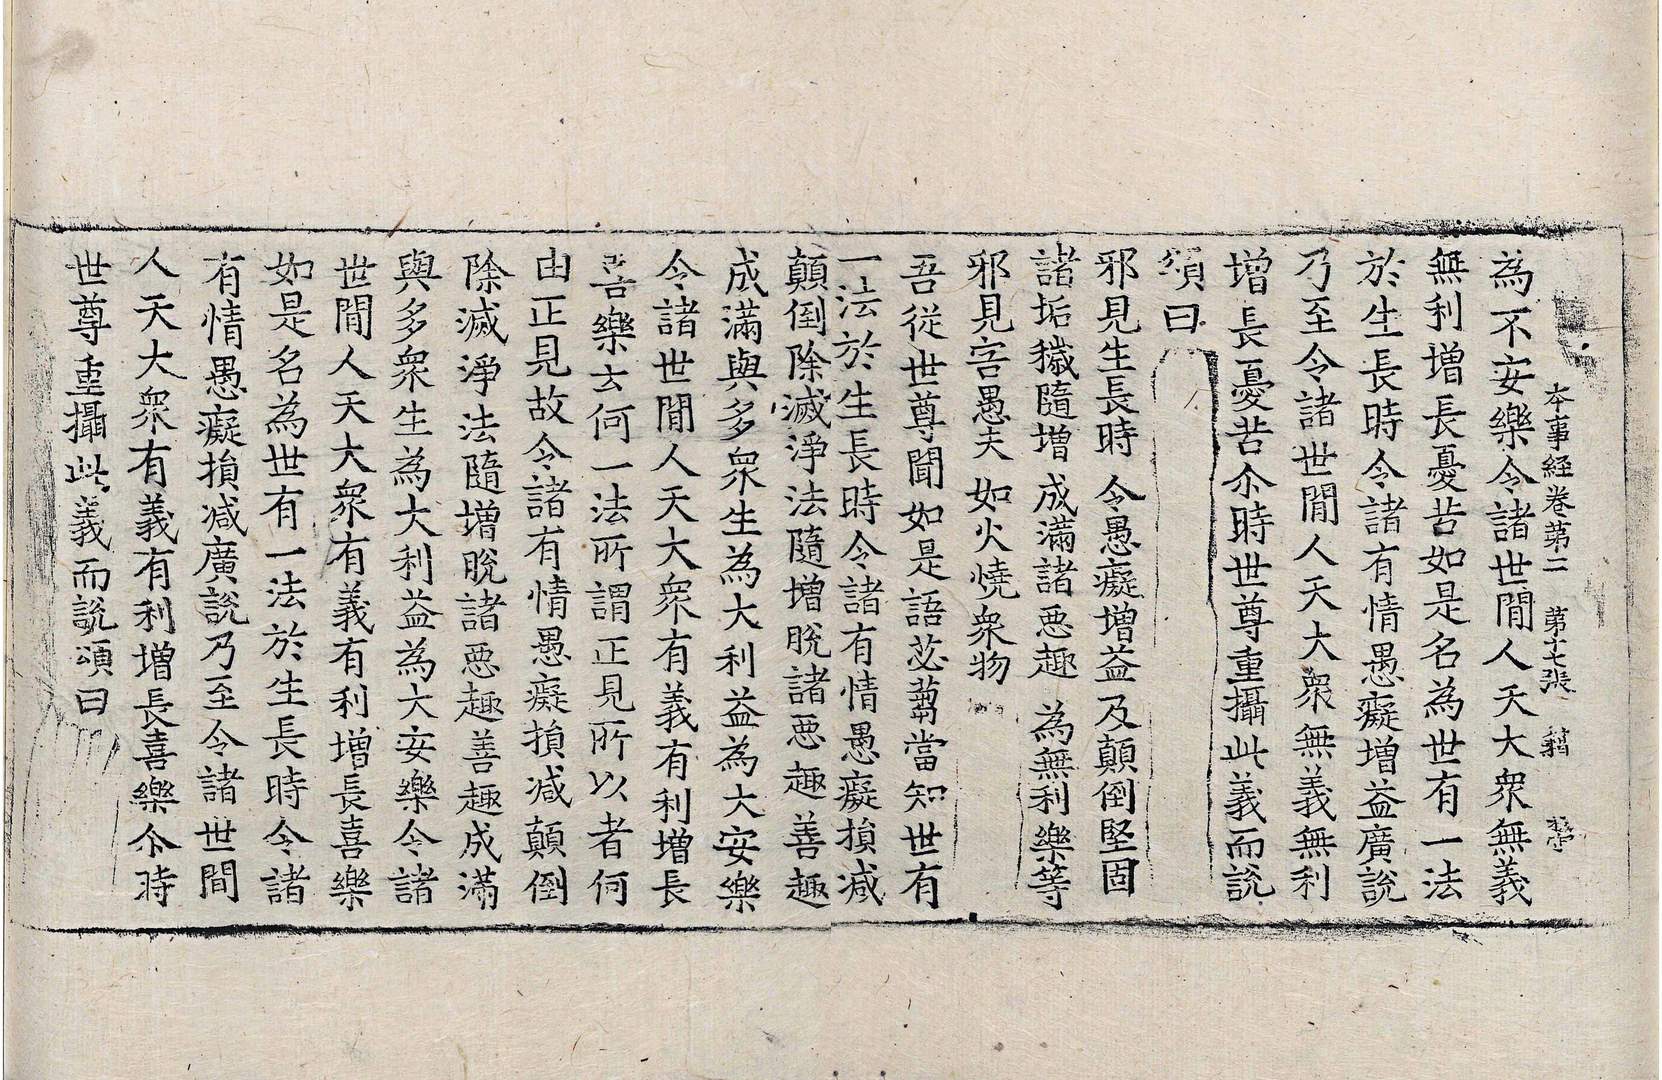 本事経卷第二 第十七張 籍
為不安樂令諸世閒人天大衆無義
無利增長憂苦如是名為世有一法
於生長時令諸有情愚癡增益廣說
乃至令諸世閒人天大衆無義無利
增長憂苦尒時世尊重攝此義而說
頌曰
邪見生長時 令愚癡增益 及顛倒堅固
諸垢穢隨增 成滿諸惡趣 為無利樂等
邪見害愚夫 如火燒衆物
吾從世尊聞如是語苾蒭當知世有
一法於生長時令諸有情愚癡損減
顛倒除滅淨法隨增脫諸惡趣善趣
成滿與多衆生為大利益為大安樂
令諸世閒人天大衆有義有利增長
喜樂云何一法所謂正見所以者何
由正見故令諸有情愚癡損減顛倒
除滅淨法隨增脫諸惡趣善趣成滿
與多衆生為大利益為大安樂令諸
世閒人天大衆有義有利增長喜樂
如是名為世有一法於生長時令諸
有情愚癡損減廣說乃至令諸世間
人天大衆有義有利增長喜樂尒時
世尊重攝此義而說頌曰